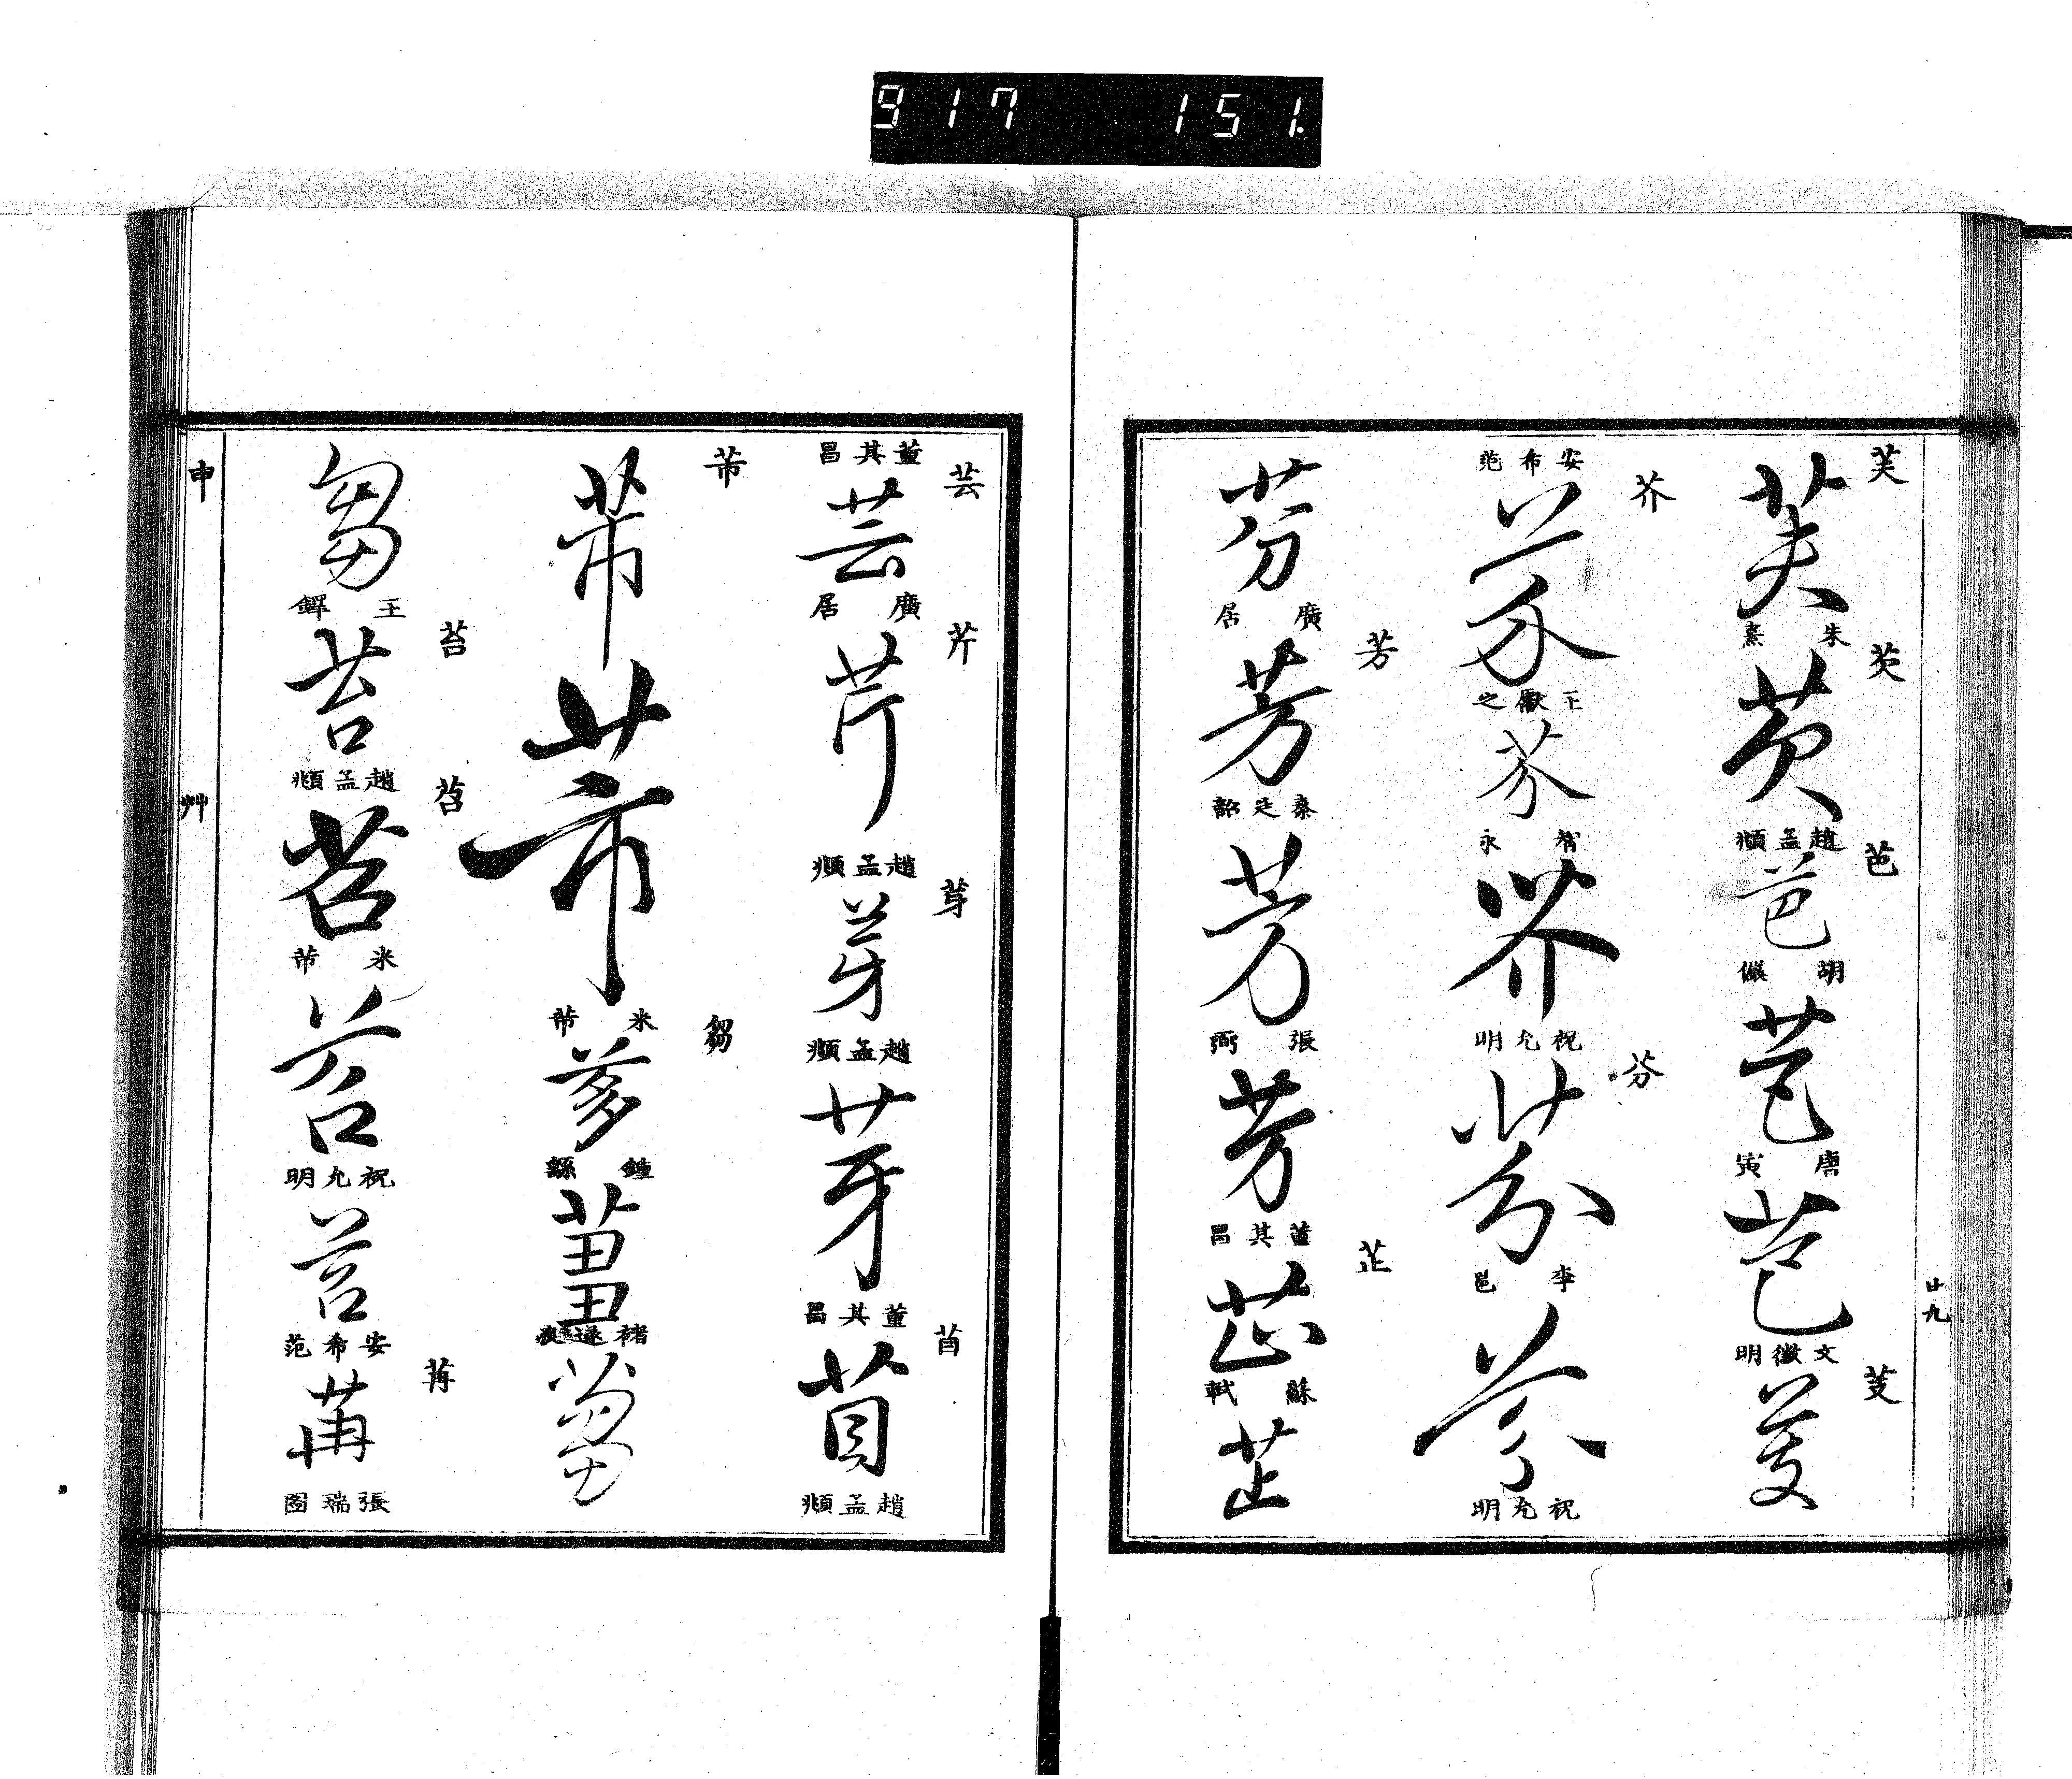 917 151.
芙
芙
朱熹
芡
芡
趙孟頫
芭
芭
胡儼
芭
唐寅
芭
文徵明
芰
芰
安希范
芥
芥
王獻之
芥
智永
芥
祝允明
芬
芬
李邕
芬
祝允明
芬
廣居
芳
芳
秦定韶
芳
張弼
芳
董其昌
芷
芷
蘇軾
芷
廿九
董其昌
芸
芸
廣居
芹
芹
趙孟頫
芽
芽
趙孟頫
芽
董其昌
苜
苜
趙孟頫
芾
芾
芾
米芾
芻
芻
鍾繇
芻
褚遂良
芻
芻
王鐸
苔
苔
趙孟頫
苕
苕
米芾
苕
祝允明
苕
安希范
苒
苒
張瑞圖
申
艸